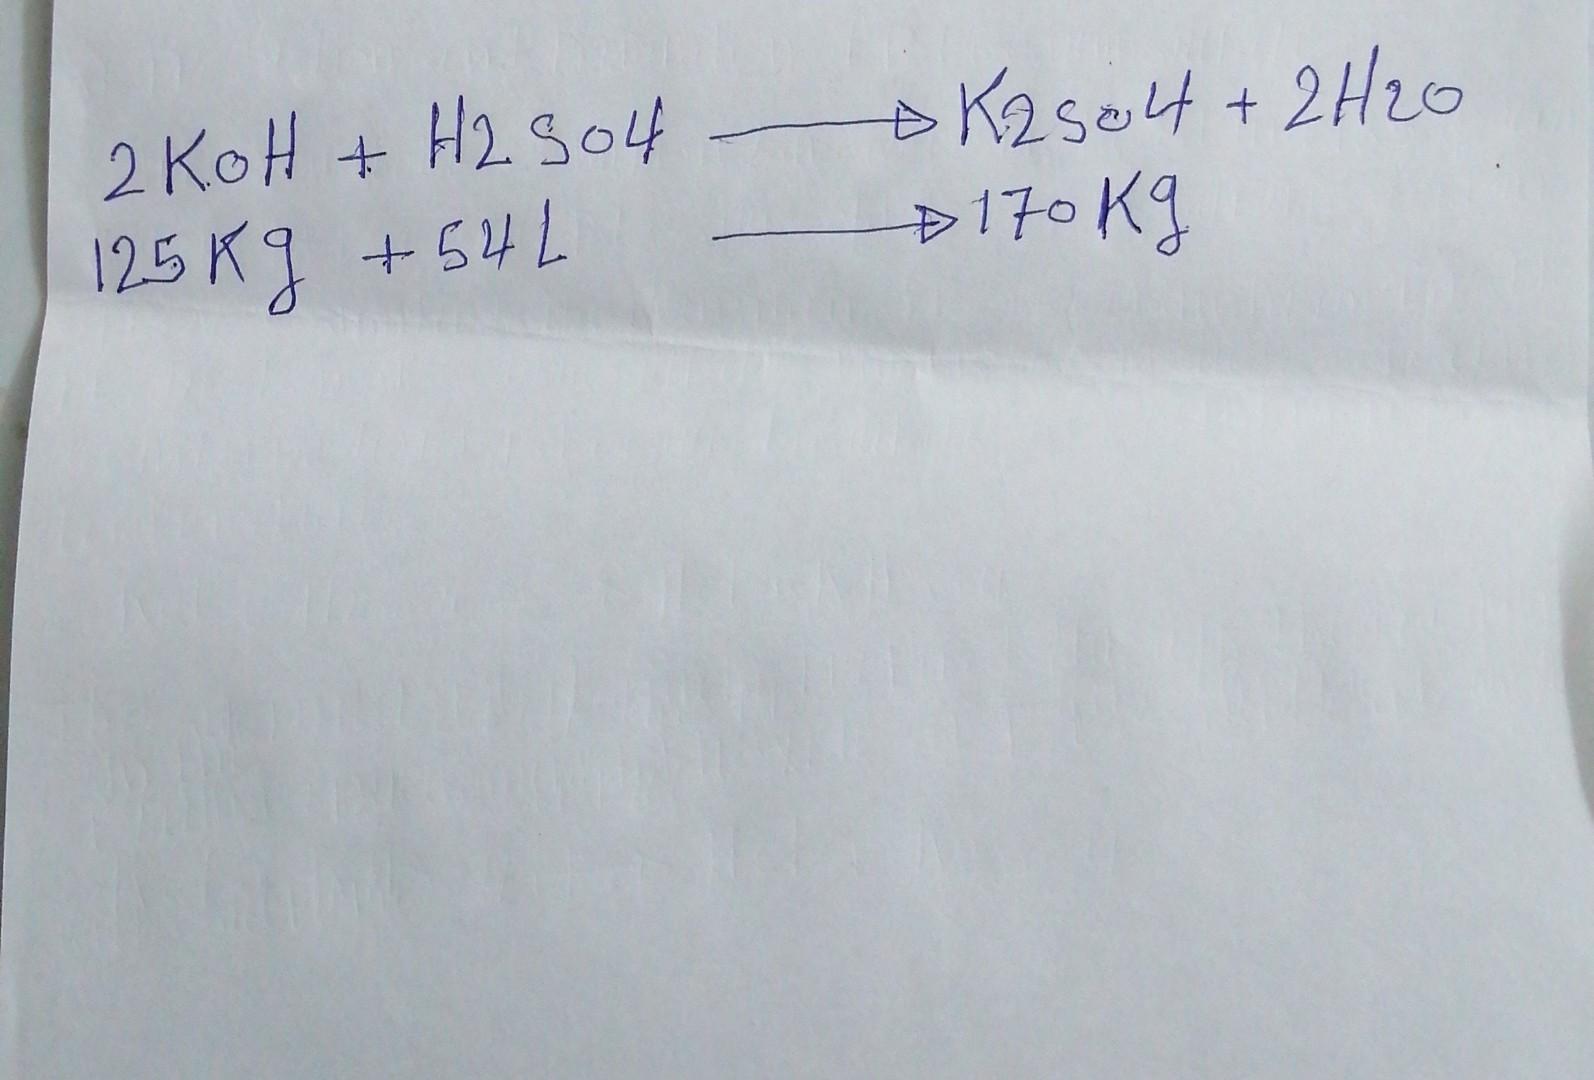 2KOH + H2SO4 → K2SO4 + 2H2O
125Kg + 54L → 170Kg